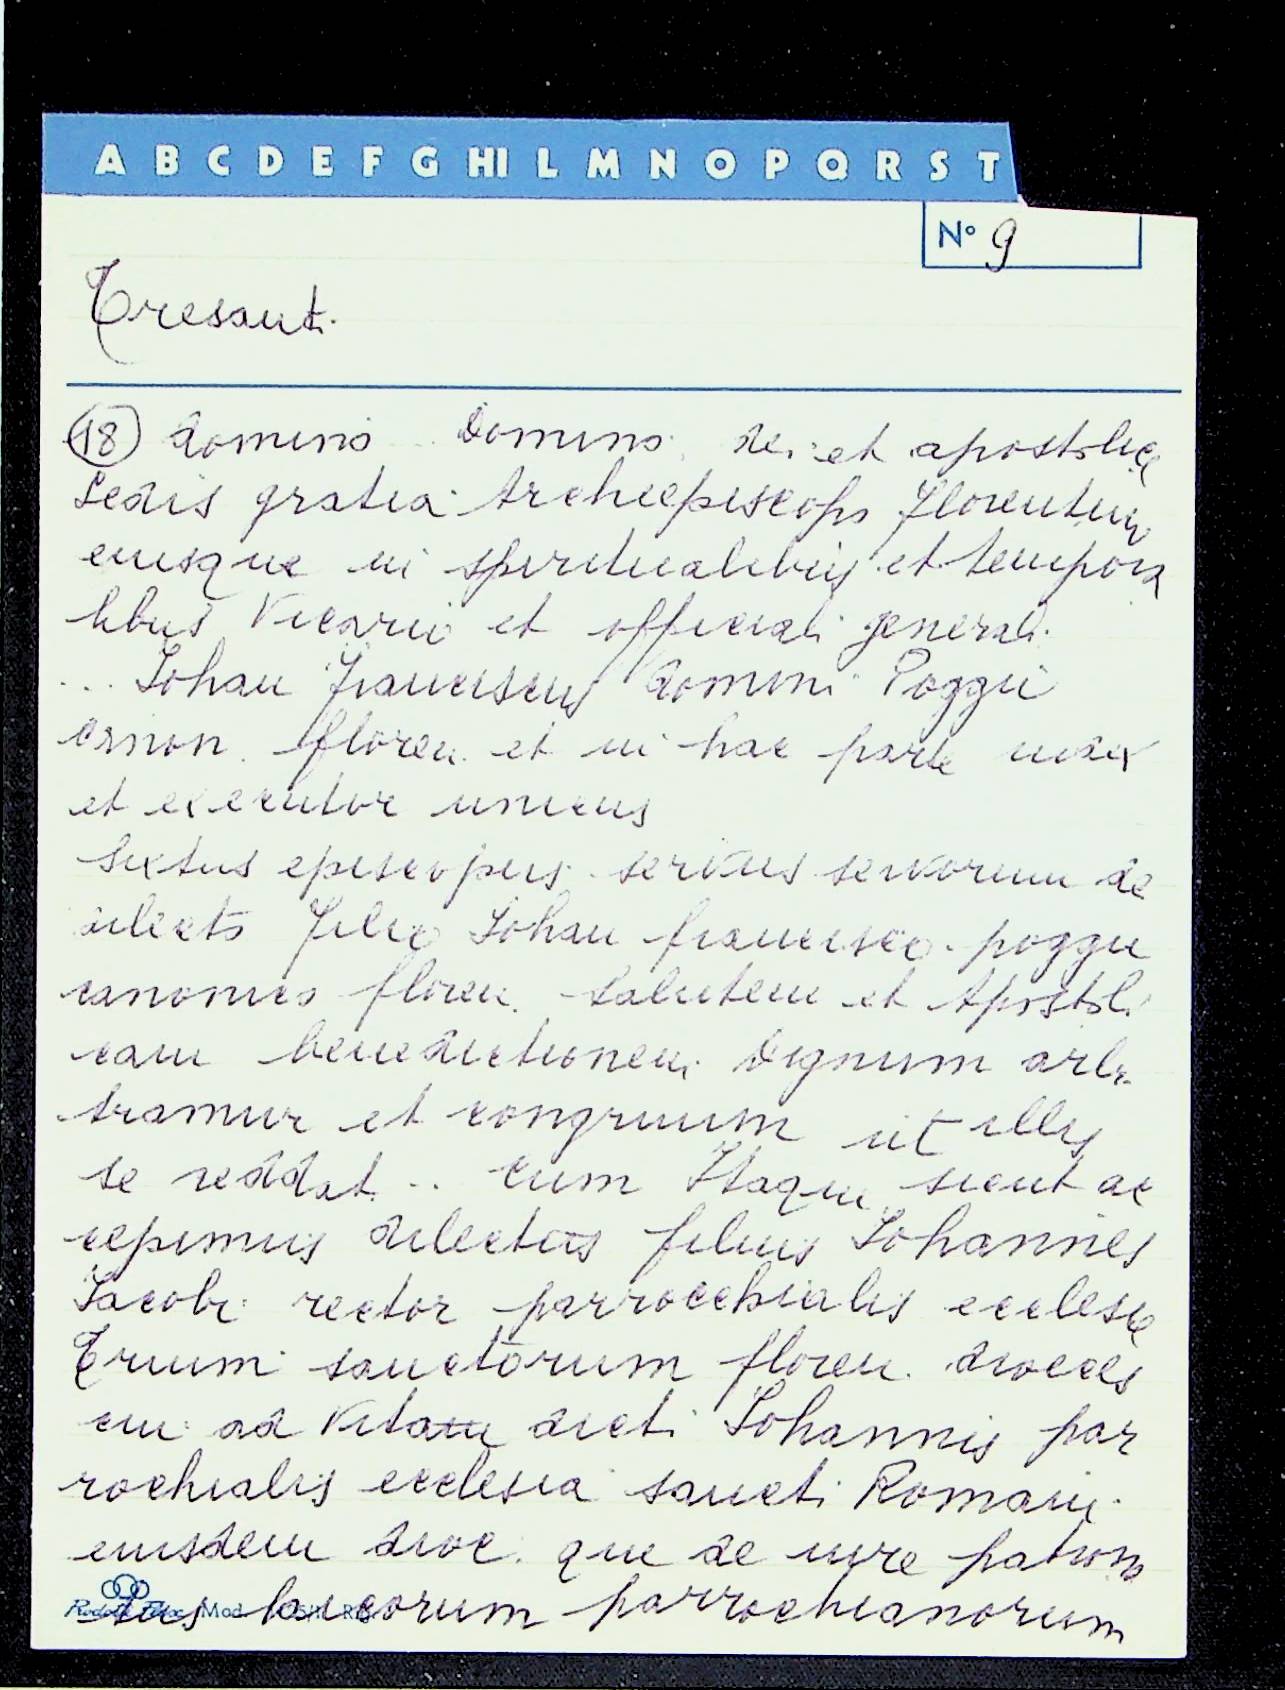 A B C D E F G HI L M N O P Q R S T
N° 9
Tresant.
(18) domino .. Domino dei et apostolice
Sedis gratia Archiepiscopo florentin
eiusque in spiritualibus et tempora
libus Vicario et officiali generali.
... Johan Franciscus domini Poggii
canon. floren. et in hac parte iudex
et executor unicus
Sixtus episcopus servus servorum de
dilecto filio Johan francisco poggii
canonico floren. salutem et Apostoli
cam benedictionem Dignum arbi
tramur et congruum ut illis
se reddat .. cum Itaque sicut ac
cepimus dilectus filius Johannes
Jacobi rector parrocchialis ecclesie
Trium sanctorum floren. dioces
cui ad Vitam dicti Johannis par
rochialis ecclesia sancti Romani
eiusdem dioc. que de iure patrona
tus laicorum parrochianorum